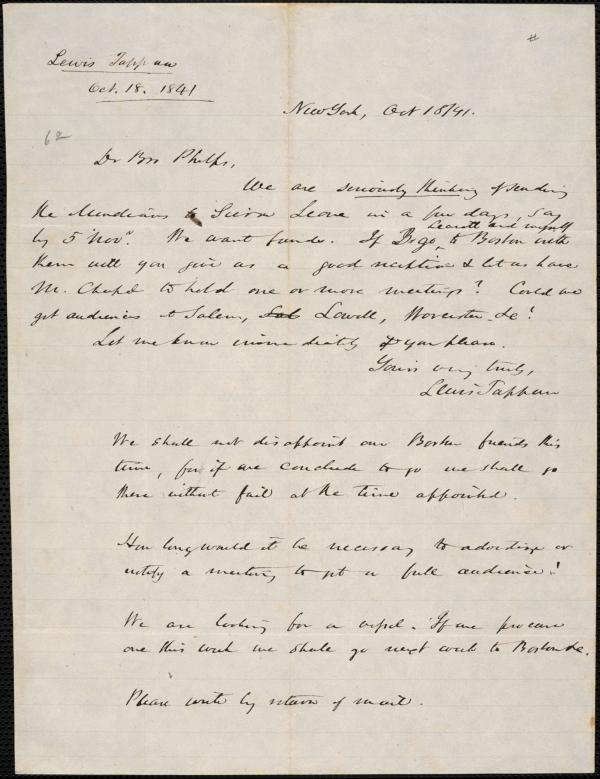 #
Lewis Tappan
Oct. 18. 1841
New York, Oct 18/41.
62
Dr Bro Phelps,
We are seriously thinking of sending
the Mendians to Sierra Leone in a few days, say
by 5 Novr. We want funds. If Br go, to Boston with
Leavitt and myself
them will you give us a good reception & let us have
M. Chapel to hold one or more meetings? Could we
get audiences at Salem, Lowell, Worcester &c?
Let me know immediately if you please.
Yours very truly,
Lewis Tappan
We shall not disappoint our Boston friends this
time, for if we conclude to go we shall go
there without fail at the time appointed.
How long would it be necessary to advertise or
notify a meeting to get a full audience?
We are looking for a vessel. If we procure
one this week we shall go next week to Boston &c.
Please write by return of mail.